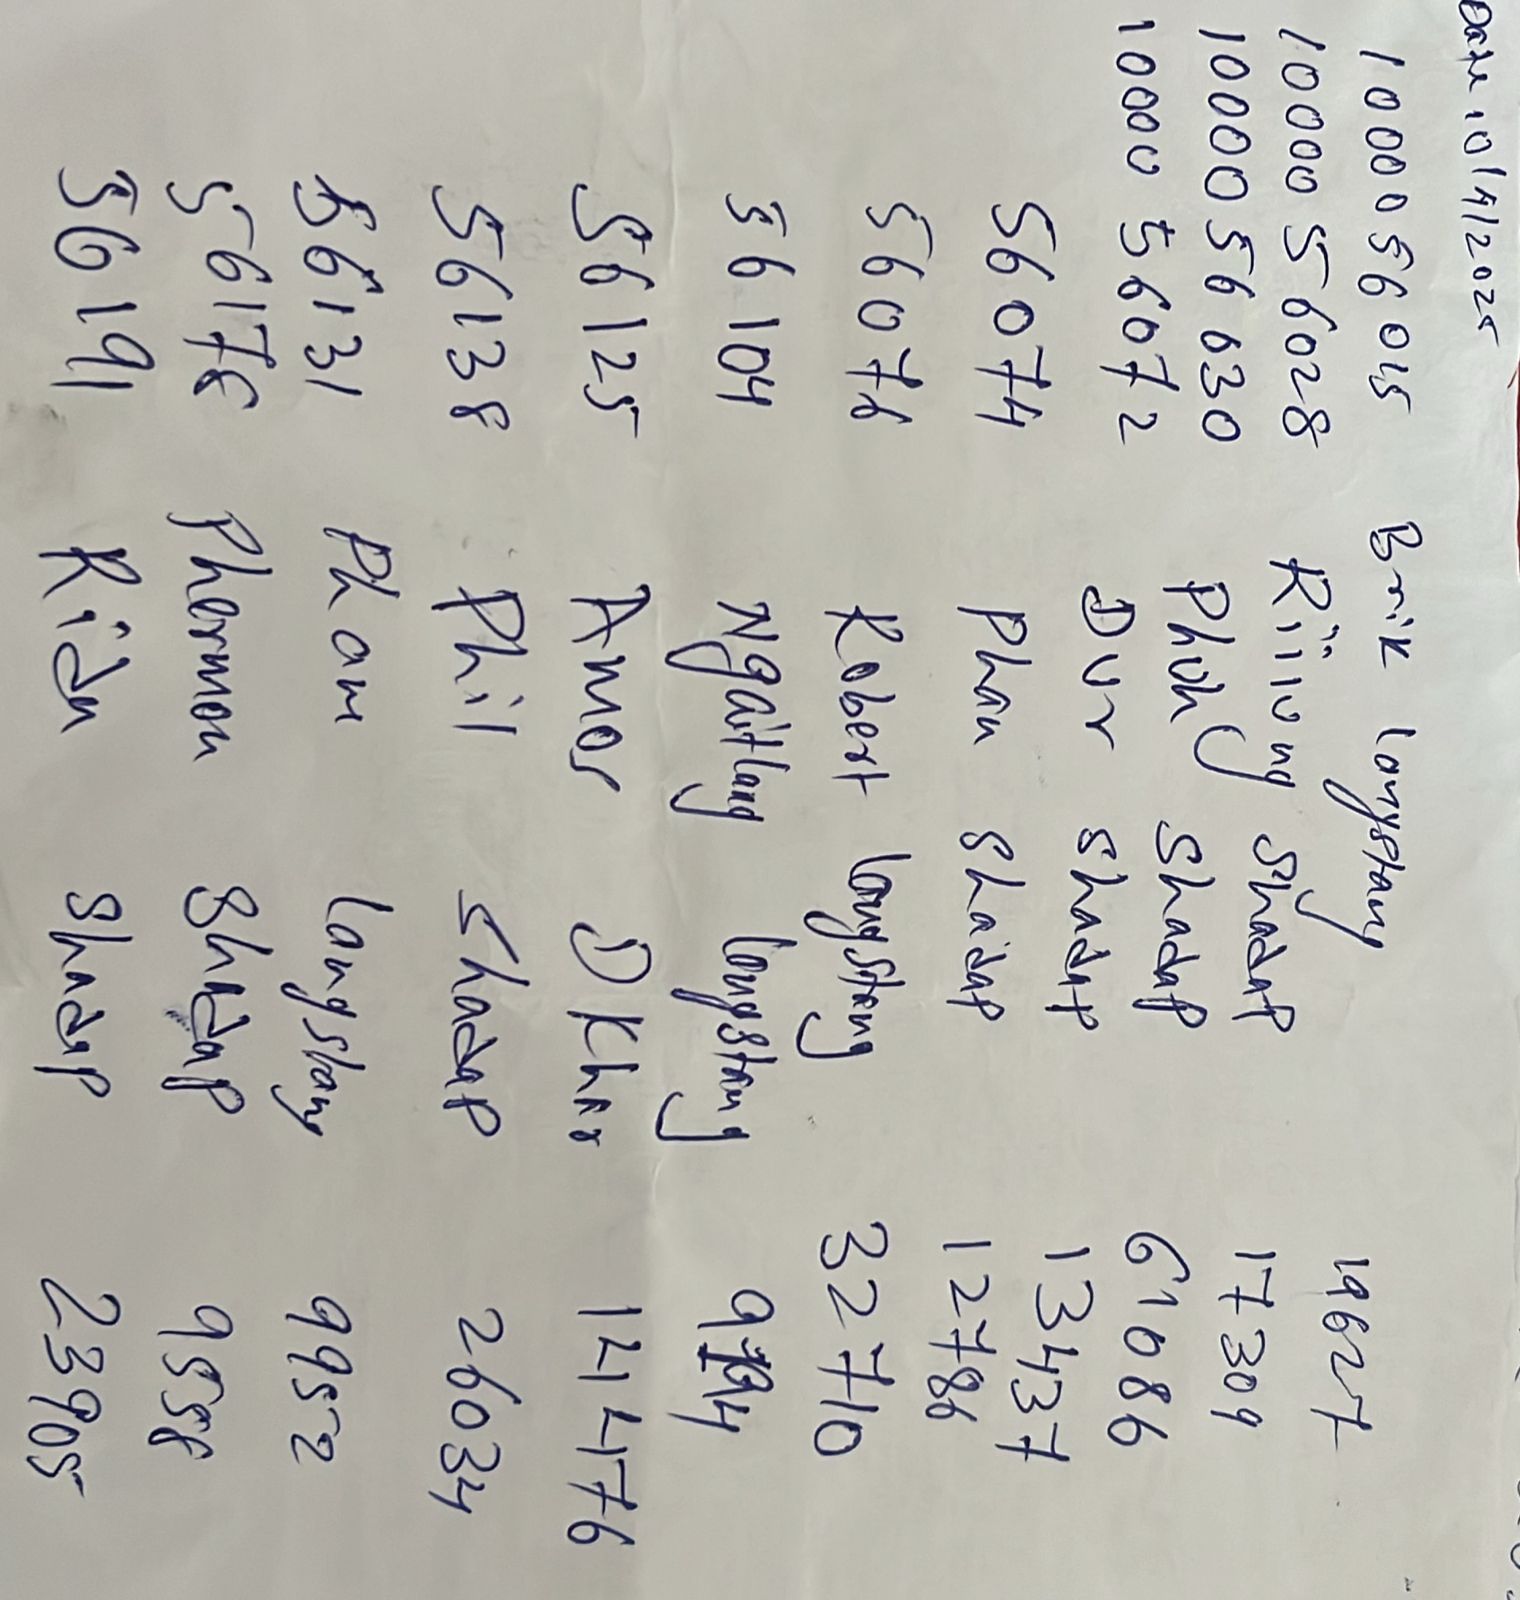 Date 10/9/2025
1000056015 Brik langstang 19627
1000056028 Riilung Shadap 17309
1000056030 Phuh Shadap 61086
1000056072 Dur Shadap 13437
56074 Phan Shadap 12786
56076 Robert langstang 32710
56104 Ngaitlang langstang
56125 Amos DKhar 14476
56138 Phil Shadap 26034
56131 Pham langstang 9952
56178 Phermon Shadap 9558
56191 Rida Shadap 23905